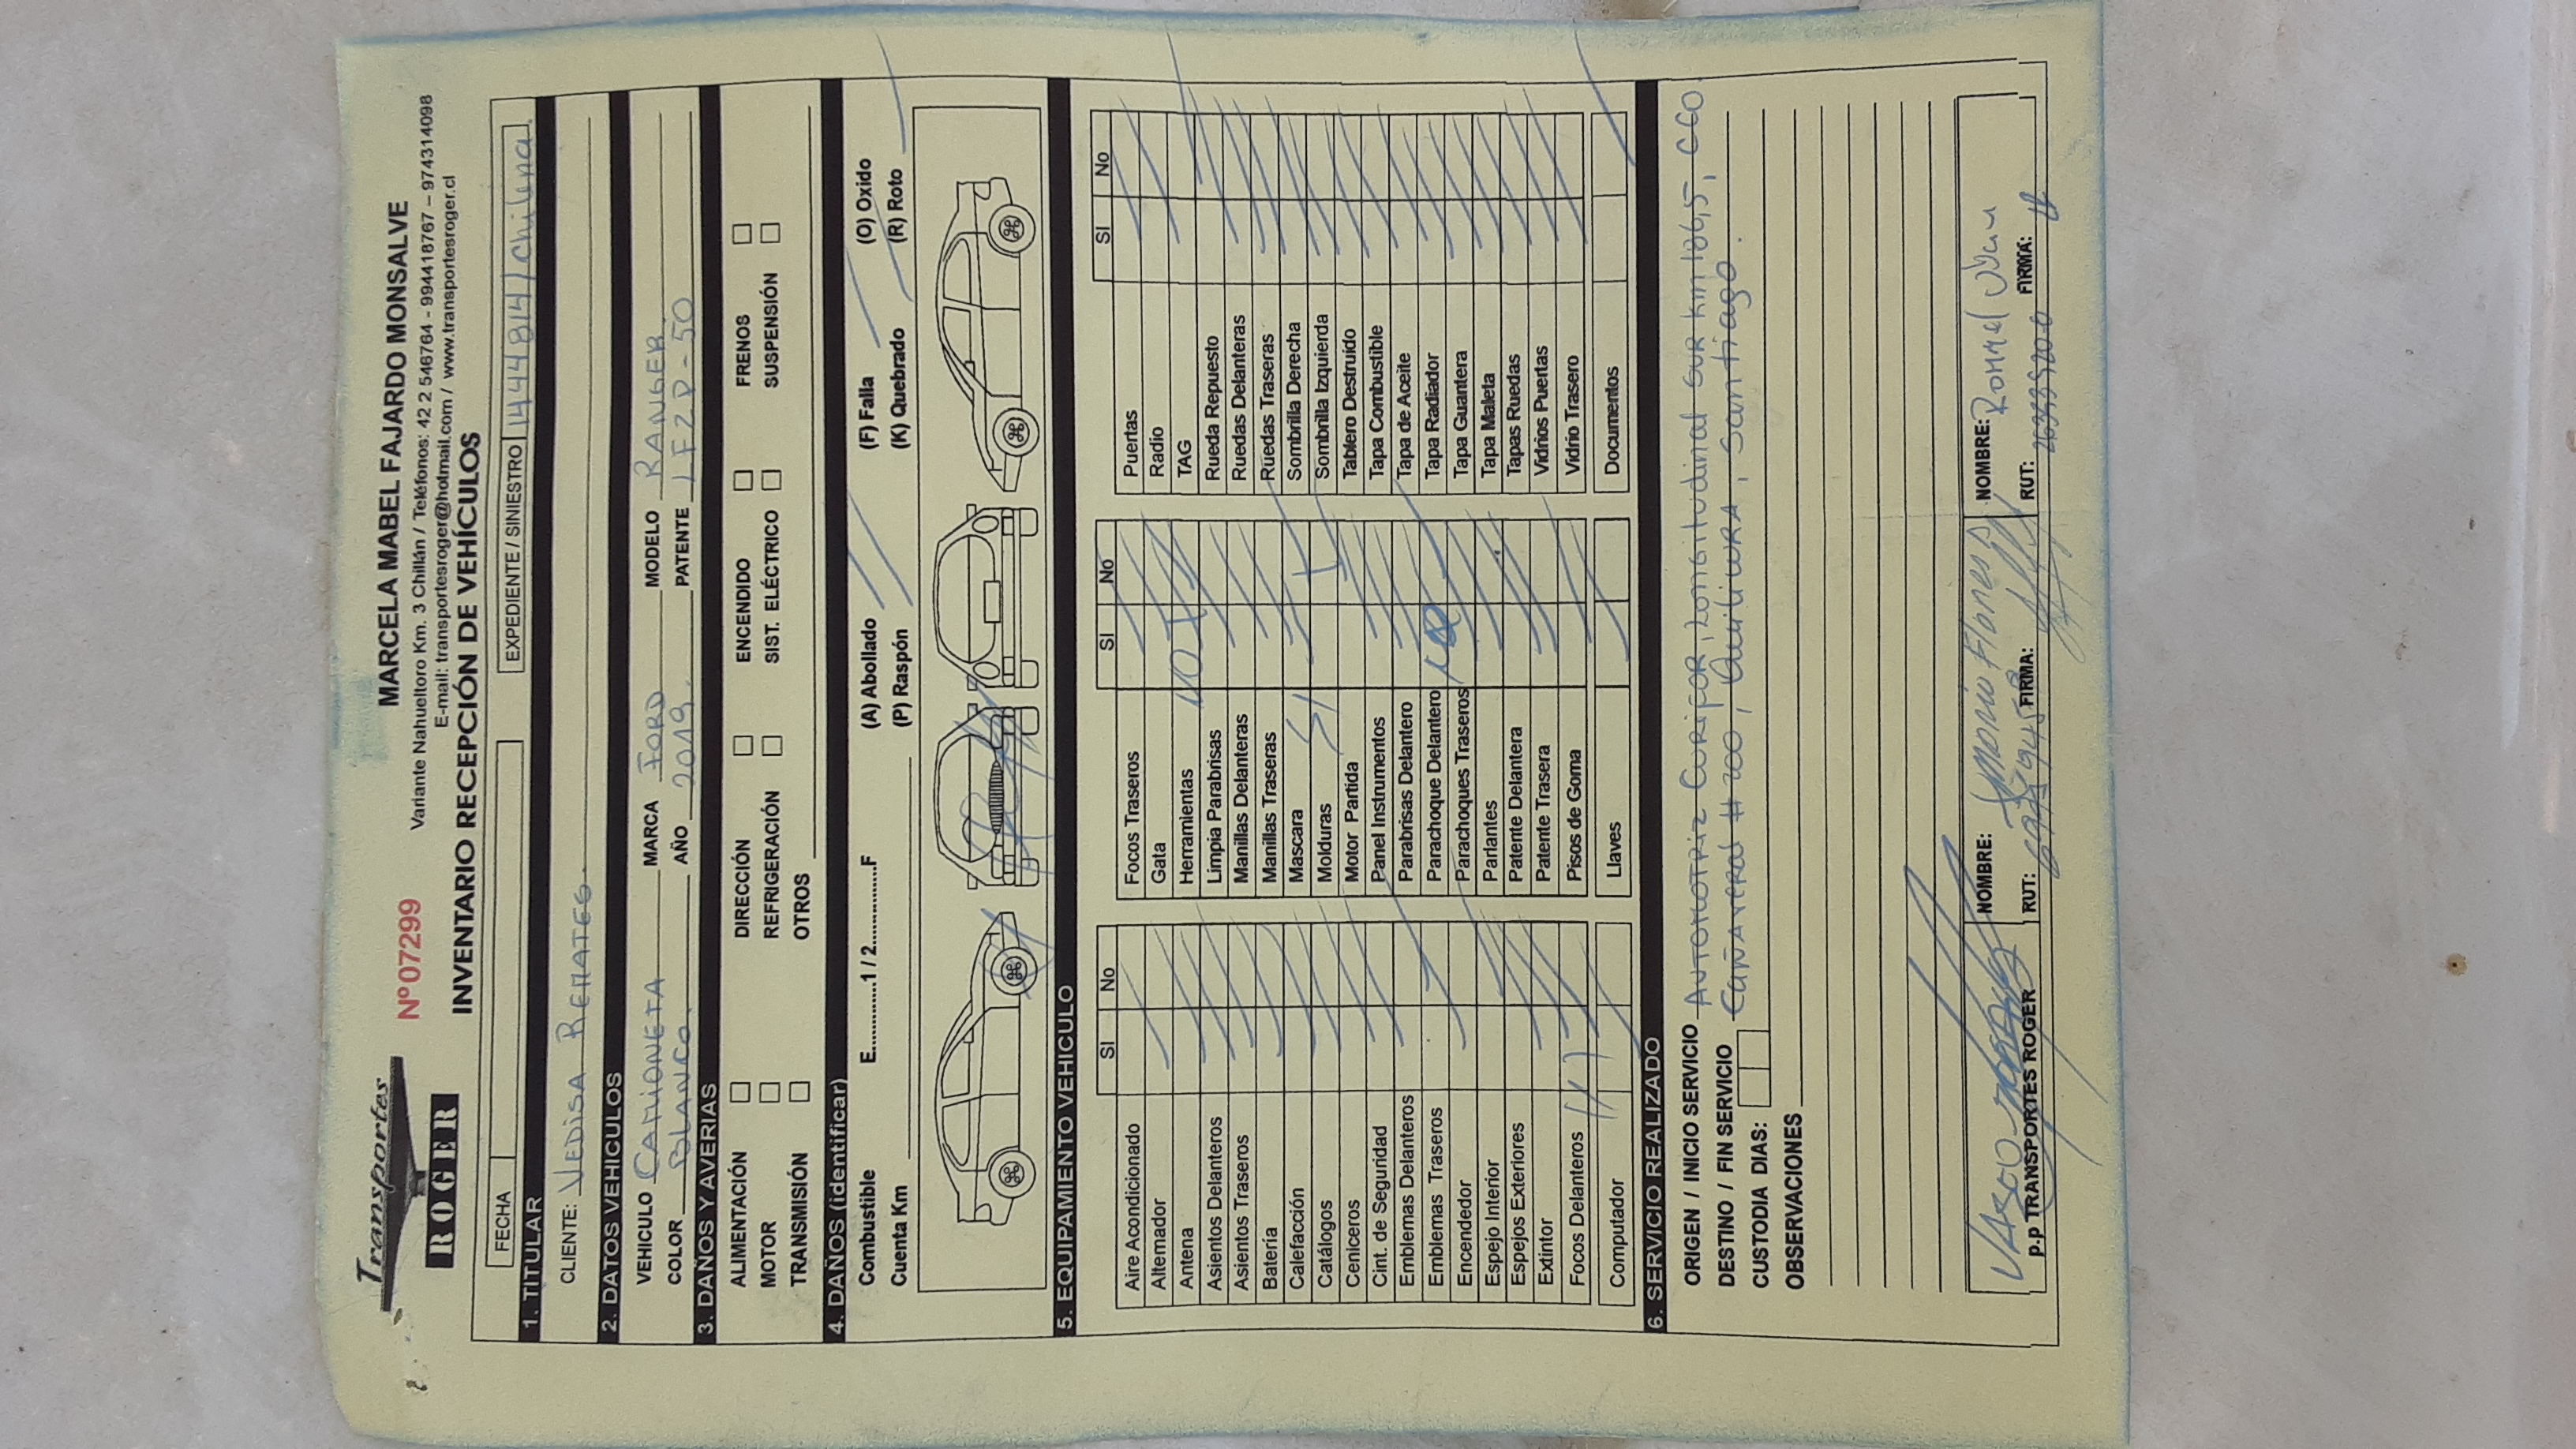 Transportes
ROGER
Nº 07299
MARCELA MABEL FAJARDO MONSALVE
Variante Nahueltoro Km. 3 Chillán / Teléfonos: 42 2 546764 - 994418767 – 974314098
E-mail: transportesroger@hotmail.com / www.transportesroger.cl
INVENTARIO RECEPCIÓN DE VEHÍCULOS
FECHA
EXPEDIENTE / SINIESTRO 1444814/Chilena.
1. TITULAR
CLIENTE: VEDISA REMATES.
2. DATOS VEHICULOS
VEHICULO CAMIONETA MARCA FORD MODELO RANGER.
COLOR BLANCO. AÑO 2019. PATENTE LFZD-50
3. DAÑOS Y AVERIAS
ALIMENTACIÓN DIRECCIÓN ENCENDIDO FRENOS
MOTOR REFRIGERACIÓN SIST. ELÉCTRICO SUSPENSIÓN
TRANSMISIÓN OTROS
4. DAÑOS (identificar)
Combustible E............1 / 2............F (A) Abollado (F) Falla (O) Oxido
Cuenta Km (P) Raspón (K) Quebrado (R) Roto
5. EQUIPAMIENTO VEHICULO
SI No
Aire Acondicionado
Alternador
Antena
Asientos Delanteros
Asientos Traseros
Batería
Calefacción
Catálogos
Ceniceros
Cint. de Seguridad
Emblemas Delanteros
Emblemas Traseros
Encendedor
Espejo Interior
Espejos Exteriores
Extintor
Focos Delanteros
Computador
SI No
Focos Traseros
Gata
Herramientas NO
Limpia Parabrisas
Manillas Delanteras
Manillas Traseras
Mascara
Molduras SI
Motor Partida
Panel Instrumentos
Parabrisas Delantero
Parachoque Delantero
Parachoques Traseros
Parlantes
Patente Delantera
Patente Trasera
Pisos de Goma
Llaves
SI No
Puertas
Radio
TAG
Rueda Repuesto
Ruedas Delanteras
Ruedas Traseras
Sombrilla Derecha
Sombrilla Izquierda
Tablero Destruido
Tapa Combustible
Tapa de Aceite
Tapa Radiador
Tapa Guantera
Tapa Maleta
Tapas Ruedas
Vidrios Puertas
Vidrio Trasero
Documentos
6. SERVICIO REALIZADO
ORIGEN / INICIO SERVICIO AUTOMOTRIZ CURIFOR, Longitudinal SUR km 186,5, CCO
DESTINO / FIN SERVICIO CAÑAVERAL # 200, Quilicura, Santiago.
CUSTODIA DIAS:
OBSERVACIONES
p.p TRANSPORTES ROGER
NOMBRE: Flores
RUT: FIRMA:
NOMBRE: Rommel
RUT: FIRMA: